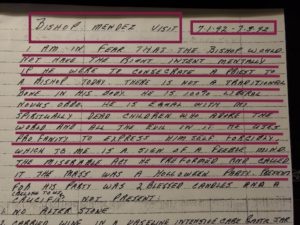 BISHOP MENDEZ VISIT 7-1-92 - 7-9-92
I AM IN FEAR THAT THE BISHOP WOULD
NOT HAVE THE RIGHT INTENT MENTALLY
IF HE WERE TO CONSECRATE A PRIEST TO
A BISHOP TODAY. THERE IS NOT A TRADITIONAL
BONE IN HIS BODY. HE IS 100% LIBERAL
NOVUS ORDO. HE IS EQUAL WITH MY
SPIRITUALLY DEAD CHILDREN WHO ADORE THE
WORLD AND ALL THE EVIL IN IT.
PROFANITY TO EXPRESS HIM SELF FORCIBLY,
WHICH TO ME IS A SIGN OF A FEEBLE MIND.
THE MISERABLE ACT HE PREFORMED AND CALLED
IT THE MASS WAS A HOLLOWEEN PARTY. PRESENT
FOR HIS PARTY WAS 2 BLESSED CANDLES AND A
CRUCIFIX. NOT PRESENT:
1. NO ALTER STONE
2. CARRIED WINE IN A VASELINE INTENSIVE CARE JAR